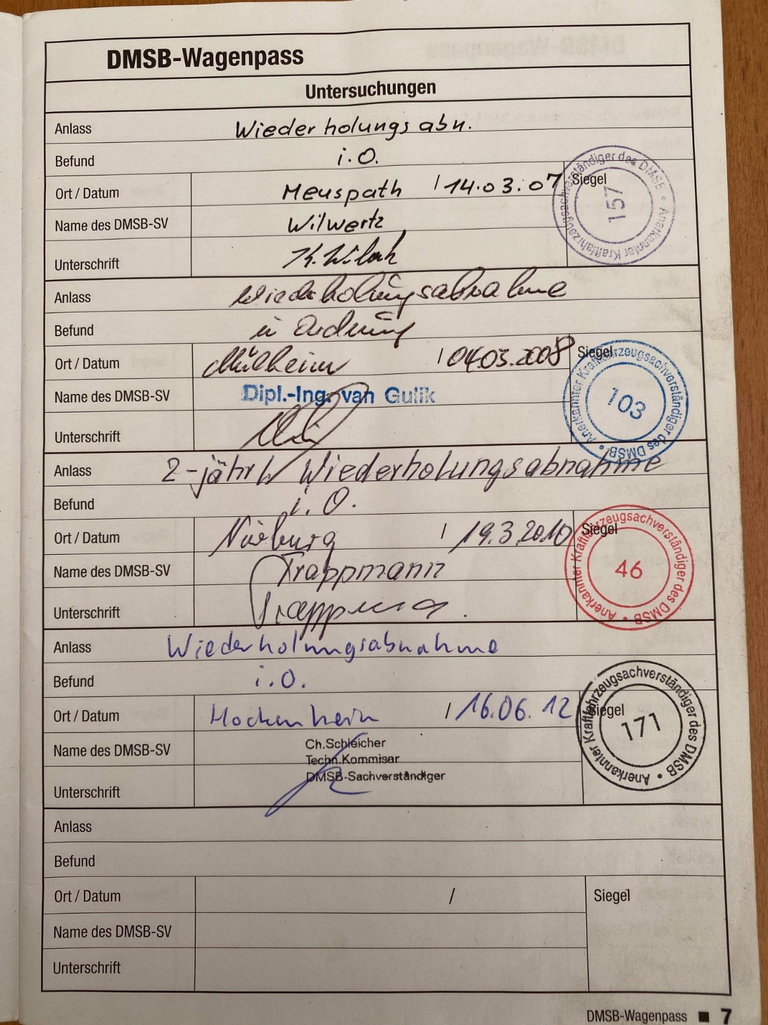 DMSB-Wagenpass
Untersuchungen
Anlass Wiederholungsabn.
Befund i.O.
Ort / Datum Meuspath / 14.03.07 Siegel
Name des DMSB-SV Wilwertz
Unterschrift
Anerkannter Kraftfahrzeugsachverständiger des DMSB • 157
Anlass Wiederholungsabnahme
Befund in Ordnung
Ort / Datum Mülheim / 04.03.2008 Siegel
Name des DMSB-SV Dipl.-Ing. van Gulik
Unterschrift
Anerkannter Kraftfahrzeugsachverständiger des DMSB • 103
Anlass 2-jährl. Wiederholungsabnahme
Befund i.O.
Ort / Datum Nürburg / 19.3.2010 Siegel
Name des DMSB-SV Trappmann
Unterschrift Trappmann
Anerkannter Kraftfahrzeugsachverständiger des DMSB • 46
Anlass Wiederholungsabnahme
Befund i.O.
Ort / Datum Hockenheim / 16.06.12 Siegel
Name des DMSB-SV Ch.Schleicher
Techn.Kommisar
DMSB-Sachverständiger
Unterschrift
Anerkannter Kraftfahrzeugsachverständiger des DMSB • 171
Anlass
Befund
Ort / Datum / Siegel
Name des DMSB-SV
Unterschrift
DMSB-Wagenpass ■ 7